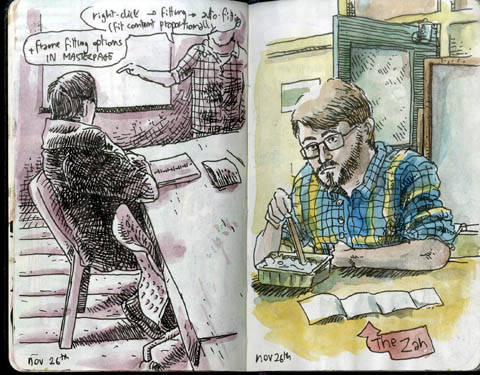 right-click → fitting → auto-fitting
(fit content proportionally)
+ frame fitting options
IN MASTERPAGE
nov 26th
nov 26th
The Zah